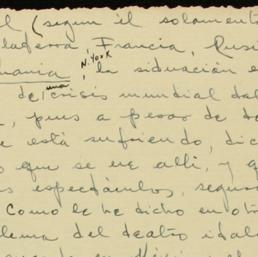 (según él solament
Francia, Rusi
mania, N. York, la situación e
de una crisis mundial del
, pues a pesar de to
e está sufriendo, dic
o que se ve allí, y q
s espectáculos, segur
Como le he dicho en otr
lema del teatro ital